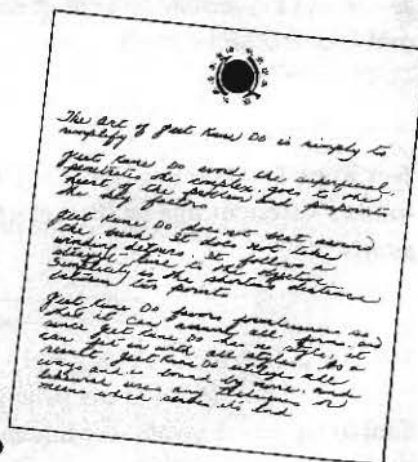 The art of Jeet Kune Do is simply to
simplify
Jeet Kune Do avoids the superficial,
penetrates the complex, goes to the
heart of the problem and pinpoints
the key factors.
Jeet Kune Do does not beat around
the bush. It does not take
winding detours. It follows a
straight line to the objective.
Simplicity is the shortest distance
between two points.
Jeet Kune Do favors formlessness so
that it can assume all forms and
since Jeet Kune Do has no style, it
can fit in with all styles. As a
result, Jeet Kune Do utilizes all
ways and is bound by none and
likewise uses any techniques or
means which serves its end